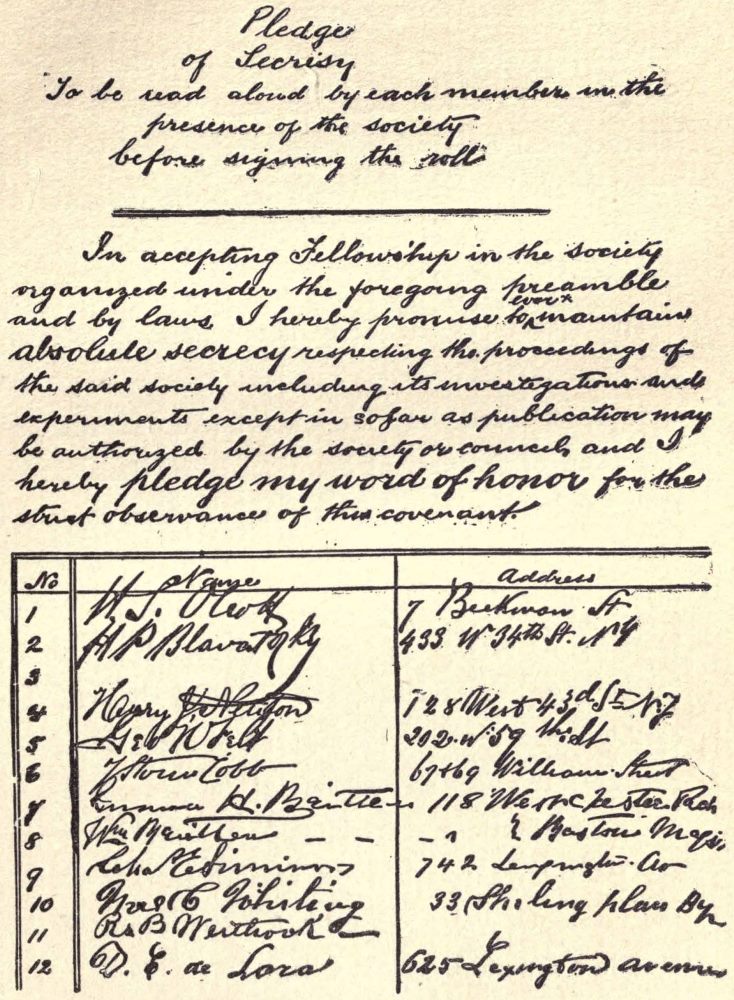 Pledge
of Secrisy
To be read aloud by each member in the
presence of the society
before signing the roll
In accepting Fellowship in the society
organized under the foregoing preamble
and by laws, I hereby promise to ever maintain
absolute secrecy respecting the proceedings of
the said society including its investigations and
experiments except in so far as publication may
be authorized by the society or council, and I
hereby pledge my word of honor for the
strict observance of this covenant.
No Name Address
1 H. S. Olcott 7 Beekman St
2 H P Blavatsky 433 W 34th St. NY
3
4 Henry J. Newton 128 West 43d St NY
5 Geo H Felt 202 W. 59th St
6 J Storer Cobb 67 & 69 William Street
7 Emma H. Britten 118 West Chester Park
8 Wm Britten - - - " Boston Mass.
9 Chas E Simmons 742 Lexington Av
10 Thos C Whiting 33
11 R B Westbrook
12 D. E. de Lara 625 Lexington avenue